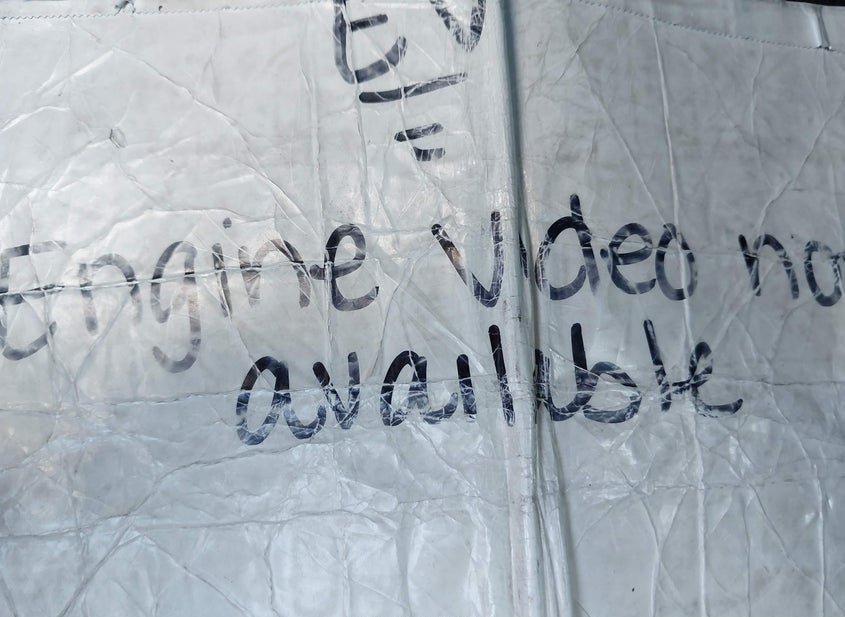 Engine Video no
available